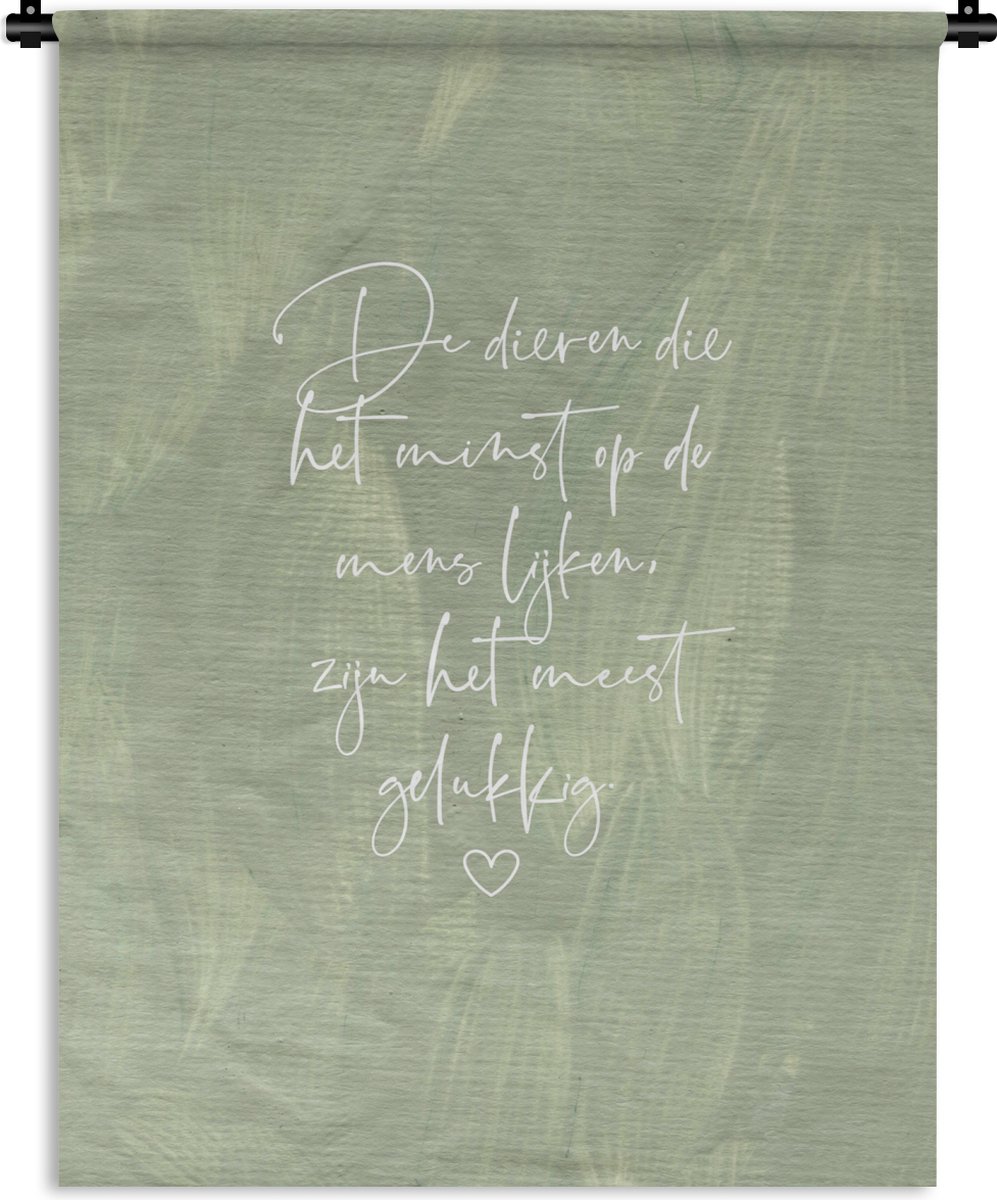 De dieren die
het minst op de
mens lijken,
zijn het meest
gelukkig.